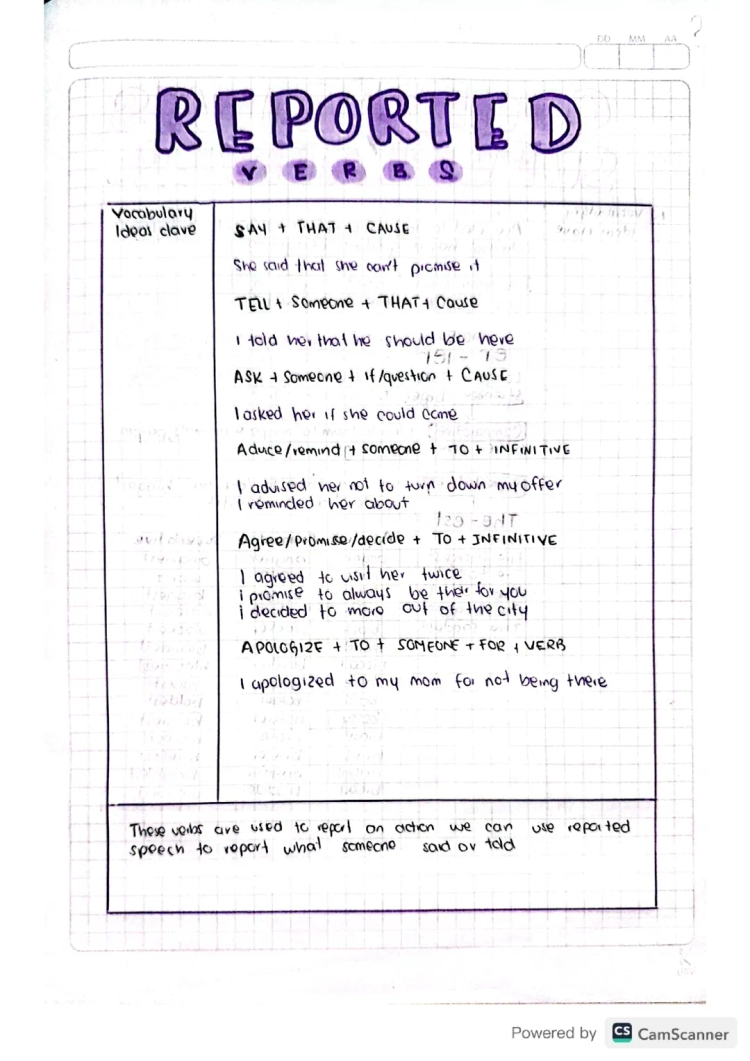 DD MM AA
REPORTED
VERBS
Vocabulary
Ideas clave
SAY + THAT + CAUSE
She said that she can't promise it
TELL + Someone + THAT + Cause
I told her that he should be here
ASK + Someone + if/question + CAUSE
I asked her if she could come
Advice/remind + someone + TO + INFINITIVE
I advised her not to turn down my offer
I reminded her about
Agree/Promise/decide + TO + INFINITIVE
I agreed to visit her twice
i promise to always be ther for you
i decided to move out of the city
APOLOGIZE + TO + SOMEONE + FOR + VERB
I apologized to my mom for not being there
These verbs are used to report an action we can use reported
speech to report what someone said or told
Powered by CS CamScanner